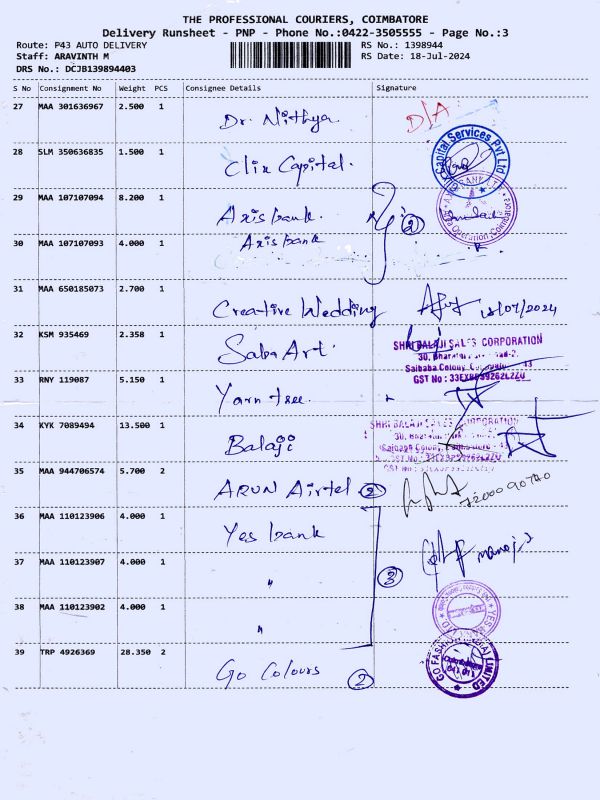 THE PROFESSIONAL COURIERS, COIMBATORE
Delivery Runsheet - PNP - Phone No.:0422-3505555 - Page No.:3
Route: P43 AUTO DELIVERY RS No.: 1398944
Staff: ARAVINTH M RS Date: 18-Jul-2024
DRS No.: DCJB139894403
S No Consignment No Weight PCS Consignee Details Signature
27 MAA 301636967 2.500 1 Dr. Nithya. D/A
28 SLM 350636835 1.500 1 Clix Capital.
Capital Services Pvt Ltd
29 MAA 107107094 8.200 1 Axis bank. 2
30 MAA 107107093 4.000 1 Axis bank
31 MAA 650185073 2.700 1 Creative Wedding 18/07/2024
32 KSM 935469 2.358 1 Saba Art.
SHRI BALAJI SALES CORPORATION
33 RNY 119087 5.150 1 Yarn tree.
34 KYK 7089494 13.500 1 Balaji
SHRI BALAJI SALES CORPORATION
35 MAA 944706574 5.700 2 ARUN Airtel 2
36 MAA 110123906 4.000 1 Yes bank
37 MAA 110123907 4.000 1 " 3
38 MAA 110123902 4.000 1 "
YES BANK
39 TRP 4926369 28.350 2 Go Colours 2
GO FASHION LIMITED